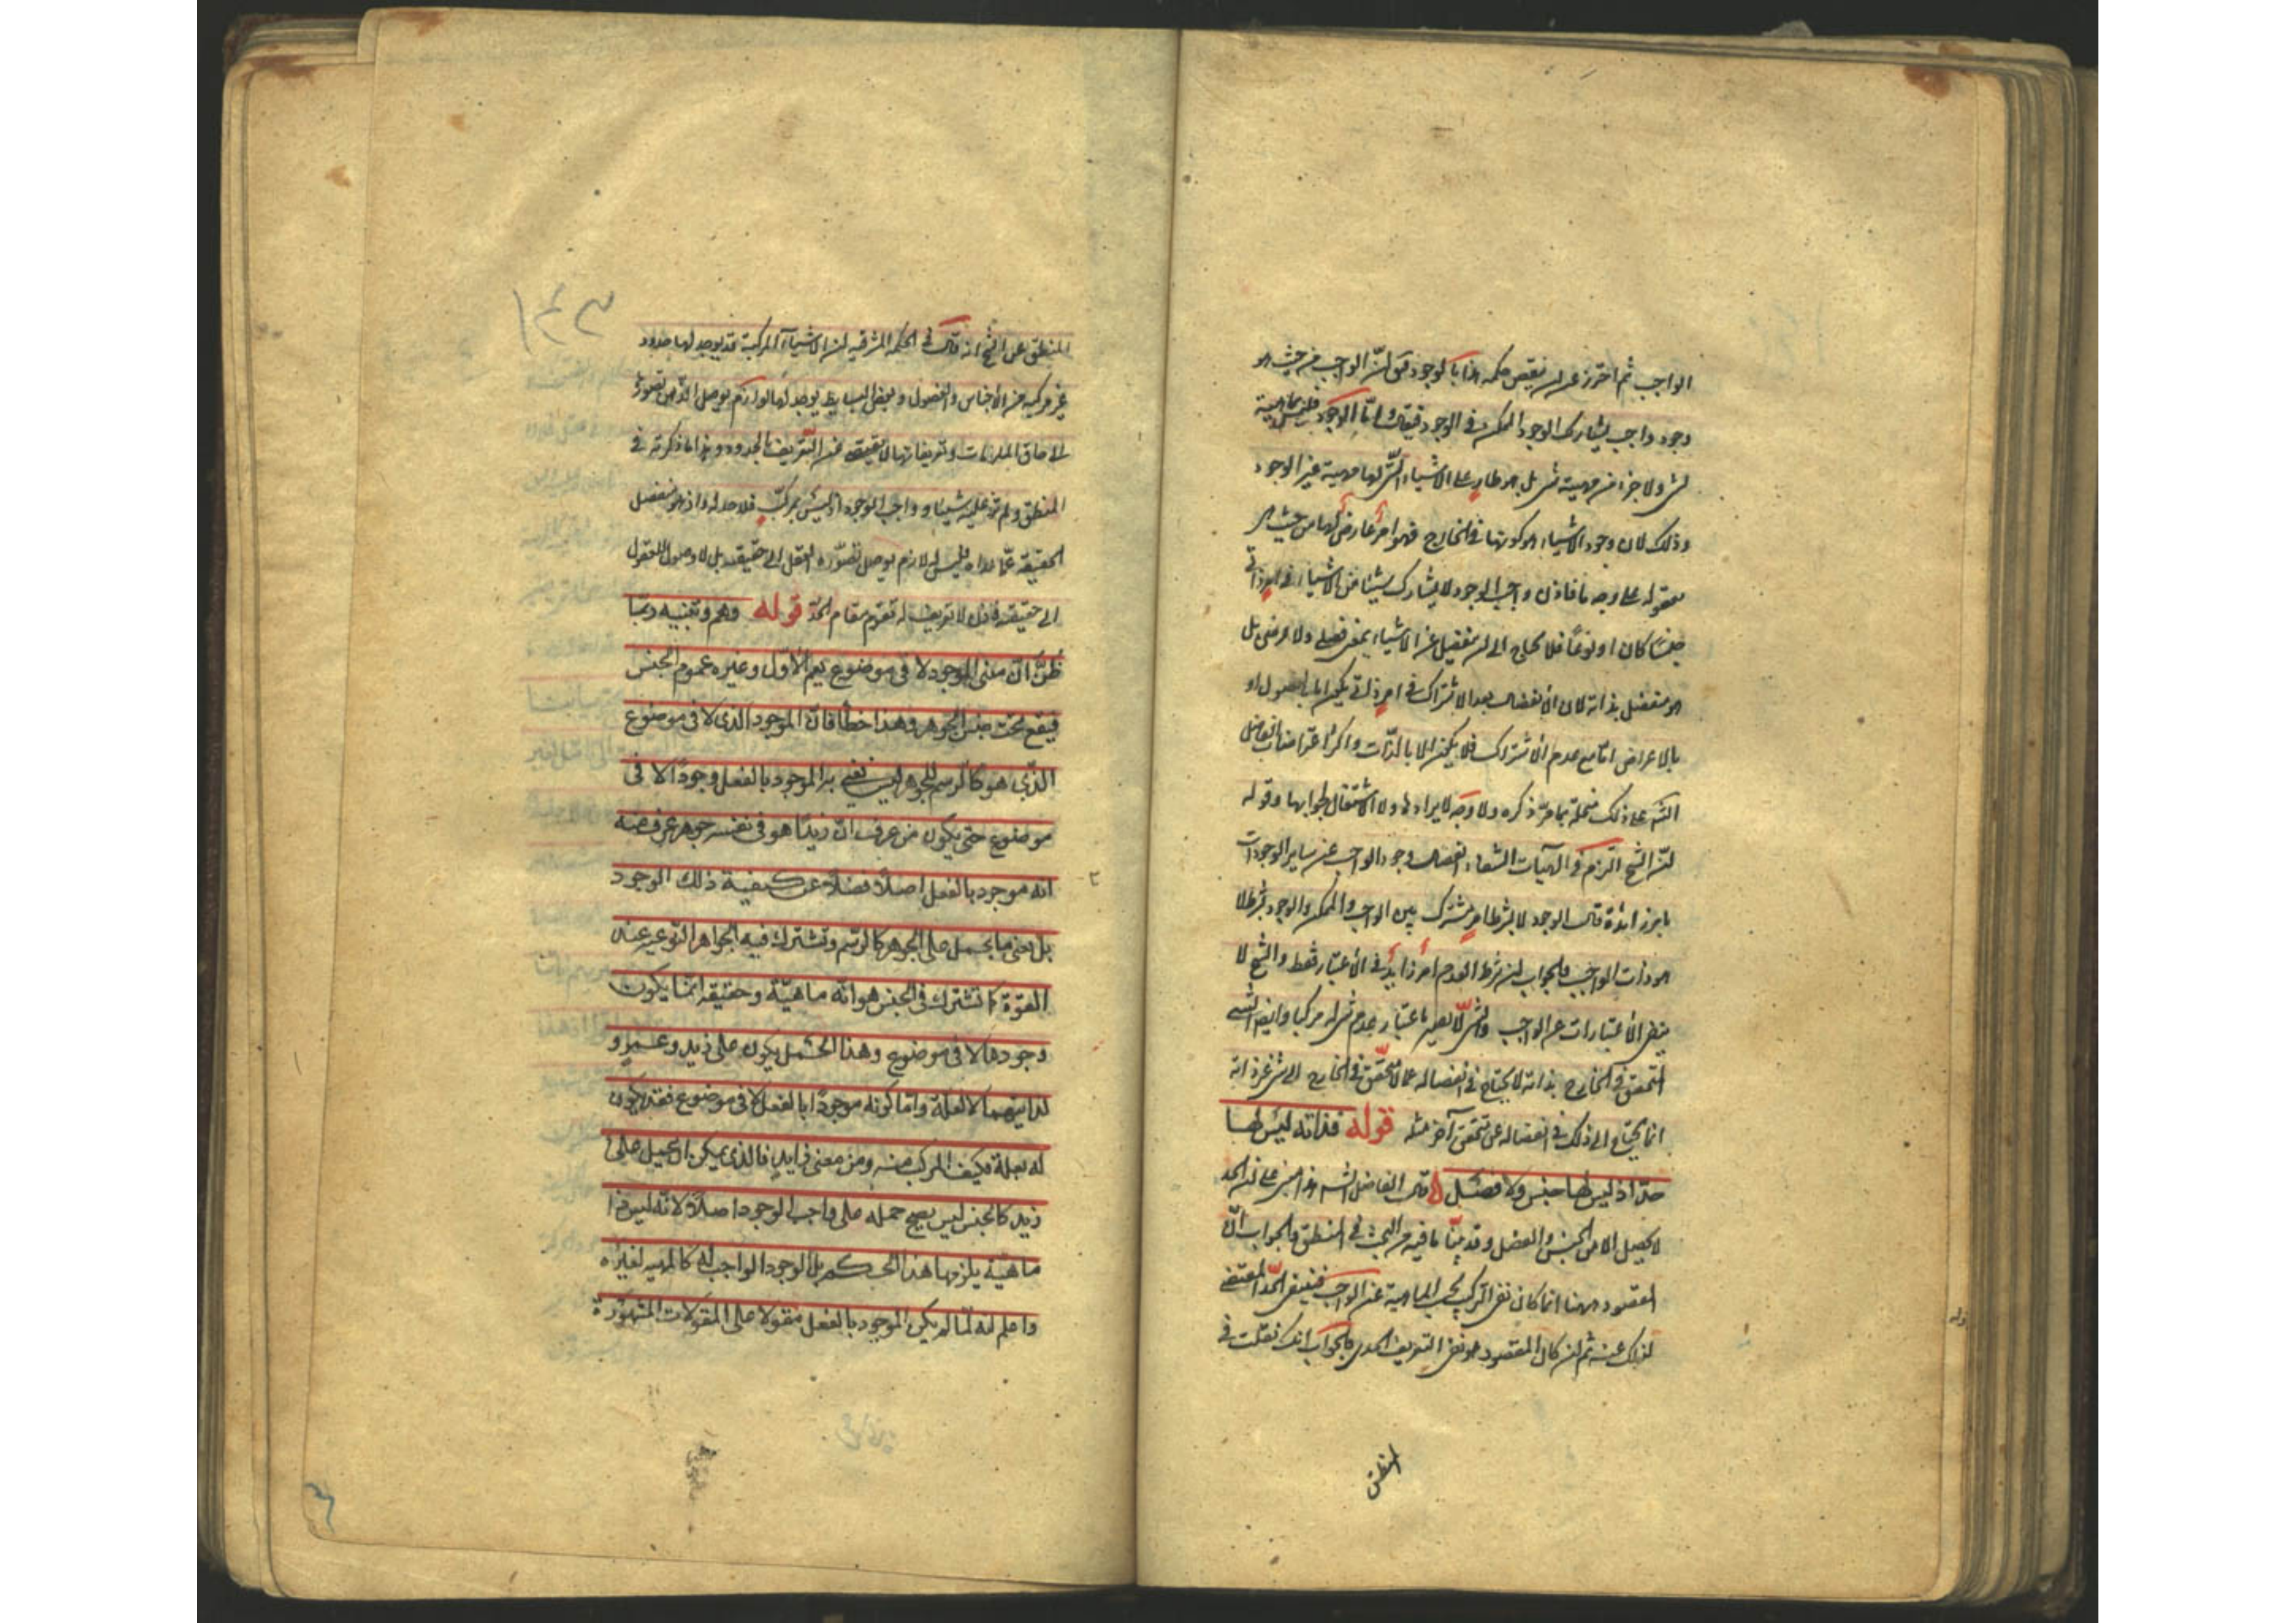 الواجب ثم احترز عن ان ينقض حكمه هذا بالوجود فى ان الواجب من حيث هو
وجود واجب يشارك الوجود الممكن فى الوجود فقال واما الوجود فليس بماهية
لشئ ولا جزءا من مهية شئ بل هو طار على الاشياء التى لها مهية غير الوجود
وذلك لان وجود الاشياء هو كونها فى الخارج فهو امر عارض لها من حيث هى
معقولة على وجه ما فاذن واجب الوجود لا يشارك شيئا من الاشياء فى امر ذاتى
جنسا كان او نوعا فلا يحتاج الى ان ينفصل عن الاشياء بمعنى فصلى ولا عرضى بل
هو منفصل بذاته لان الانفصال بعد الاشتراك فى امر ذاتى يكون اما بالفصول او
بالاعراض اما مع عدم الاشتراك فلا يكون الا بالذات واكثر اعتراضات الفاضل
الشه على ذلك منحلة بما مر ذكره ولا وجه لايرادها ولا الاشتغال بجوابها وقوله
ان الشيخ التزم فى الهيات الشفاء انفصال وجود الواجب عن ساير الوجودات
بامر زائد فانه قال الوجود لا بشرط امر مشترك بين الواجب والممكن والوجود بشرط لا
هو ذات الواجب والجواب ان شرط العدم امر زايد فى الاعتبار فقط والشيخ لا
ينفى الاعتبارات عن الواجب والشئ لا يصير باعتبار عدم شئ له مركبا وايضا الشئ
المتحقق فى الخارج بذاته لا يحتاج فى انفصاله عما لا يتحقق فى الخارج الى شئ غير ذاته
انما يحتاج الى ذلك فى انفصاله عن متحقق آخر مثله قوله فذاته ليس لها
حد اذ ليس لها جنس ولا فصل قال الفاضل الشه هذا مبنى على ان الحد
لا يحصل الا من الجنس والفصل وقد بينا ما فيه من البحث فى المنطق والجواب ان
المقصود ههنا انما كان نفى التركيب بحسب الماهية عن الواجب فنفى الحد المقتضى
لذلك عنه ثم ان كان المقصود هو نفى التعريف الحدى فالجواب انك نقلت فى
المنطق
المنطق عن الشيخ انه قال فى الحكمة المشرقية ان الاشياء المركبة قد يوجد لها حدود
غير مركبة من الاجناس والفصول وبعض البسايط يوجد لها لوازم يوصل الذهن تصورها
الى حاق الملزومات وتعريفاتها لا يقصر عن التعريف بالحدود وهذا ما ذكرته فى
المنطق ولم تزد عليه شيئا وواجب الوجود اذ ليس بمركب فلا حد له واذ هو منفصل
الحقيقة عما عداه فليس له لازم يوصل تصوره العقل الى حقيقته بل لا وصول للعقول
الى حقيقته فاذن لا تعريف له تقوم مقام الحد قوله وهم وتنبيه ربما
ظن ان معنى الموجود لا فى موضوع يعم الاول وغيره عموم الجنس
فيقع تحت جنس الجوهر وهذا خطأ فان الموجود الذى لا فى موضوع
الذى هو كالرسم للجوهر ليس نعنى به الموجود بالفعل وجودا لا فى
موضوع حتى يكون من عرف ان زيدا هو فى نفسه جوهر عرف منه
انه موجود بالفعل اصلا فضلا عن كيفية ذلك الوجود
بل معنى ما يحمل على الجوهر كالرسم وتشترك فيه الجواهر النوعية عند
القوة كما تشترك فى الجنس هو انه ماهية وحقيقة انما يكون
وجودها لا فى موضوع وهذا الحمل يكون على زيد وعمرو
لذاتيهما لا لعلة واما كونه موجودا بالفعل لا فى موضوع فقد يكون
له بعلة فكيف المركب منه ومن معنى زايد فالذى يمكن ان يحمل على
زيد كالجنس ليس يصح حمله على واجب الوجود اصلا لانه ليس ذا
ماهية يلزمها هذا الحكم بل الوجود الواجب له كالمهية لغيره
واعلم انه لما لم يكن الموجود بالفعل مقولا على المقولات المشهورة